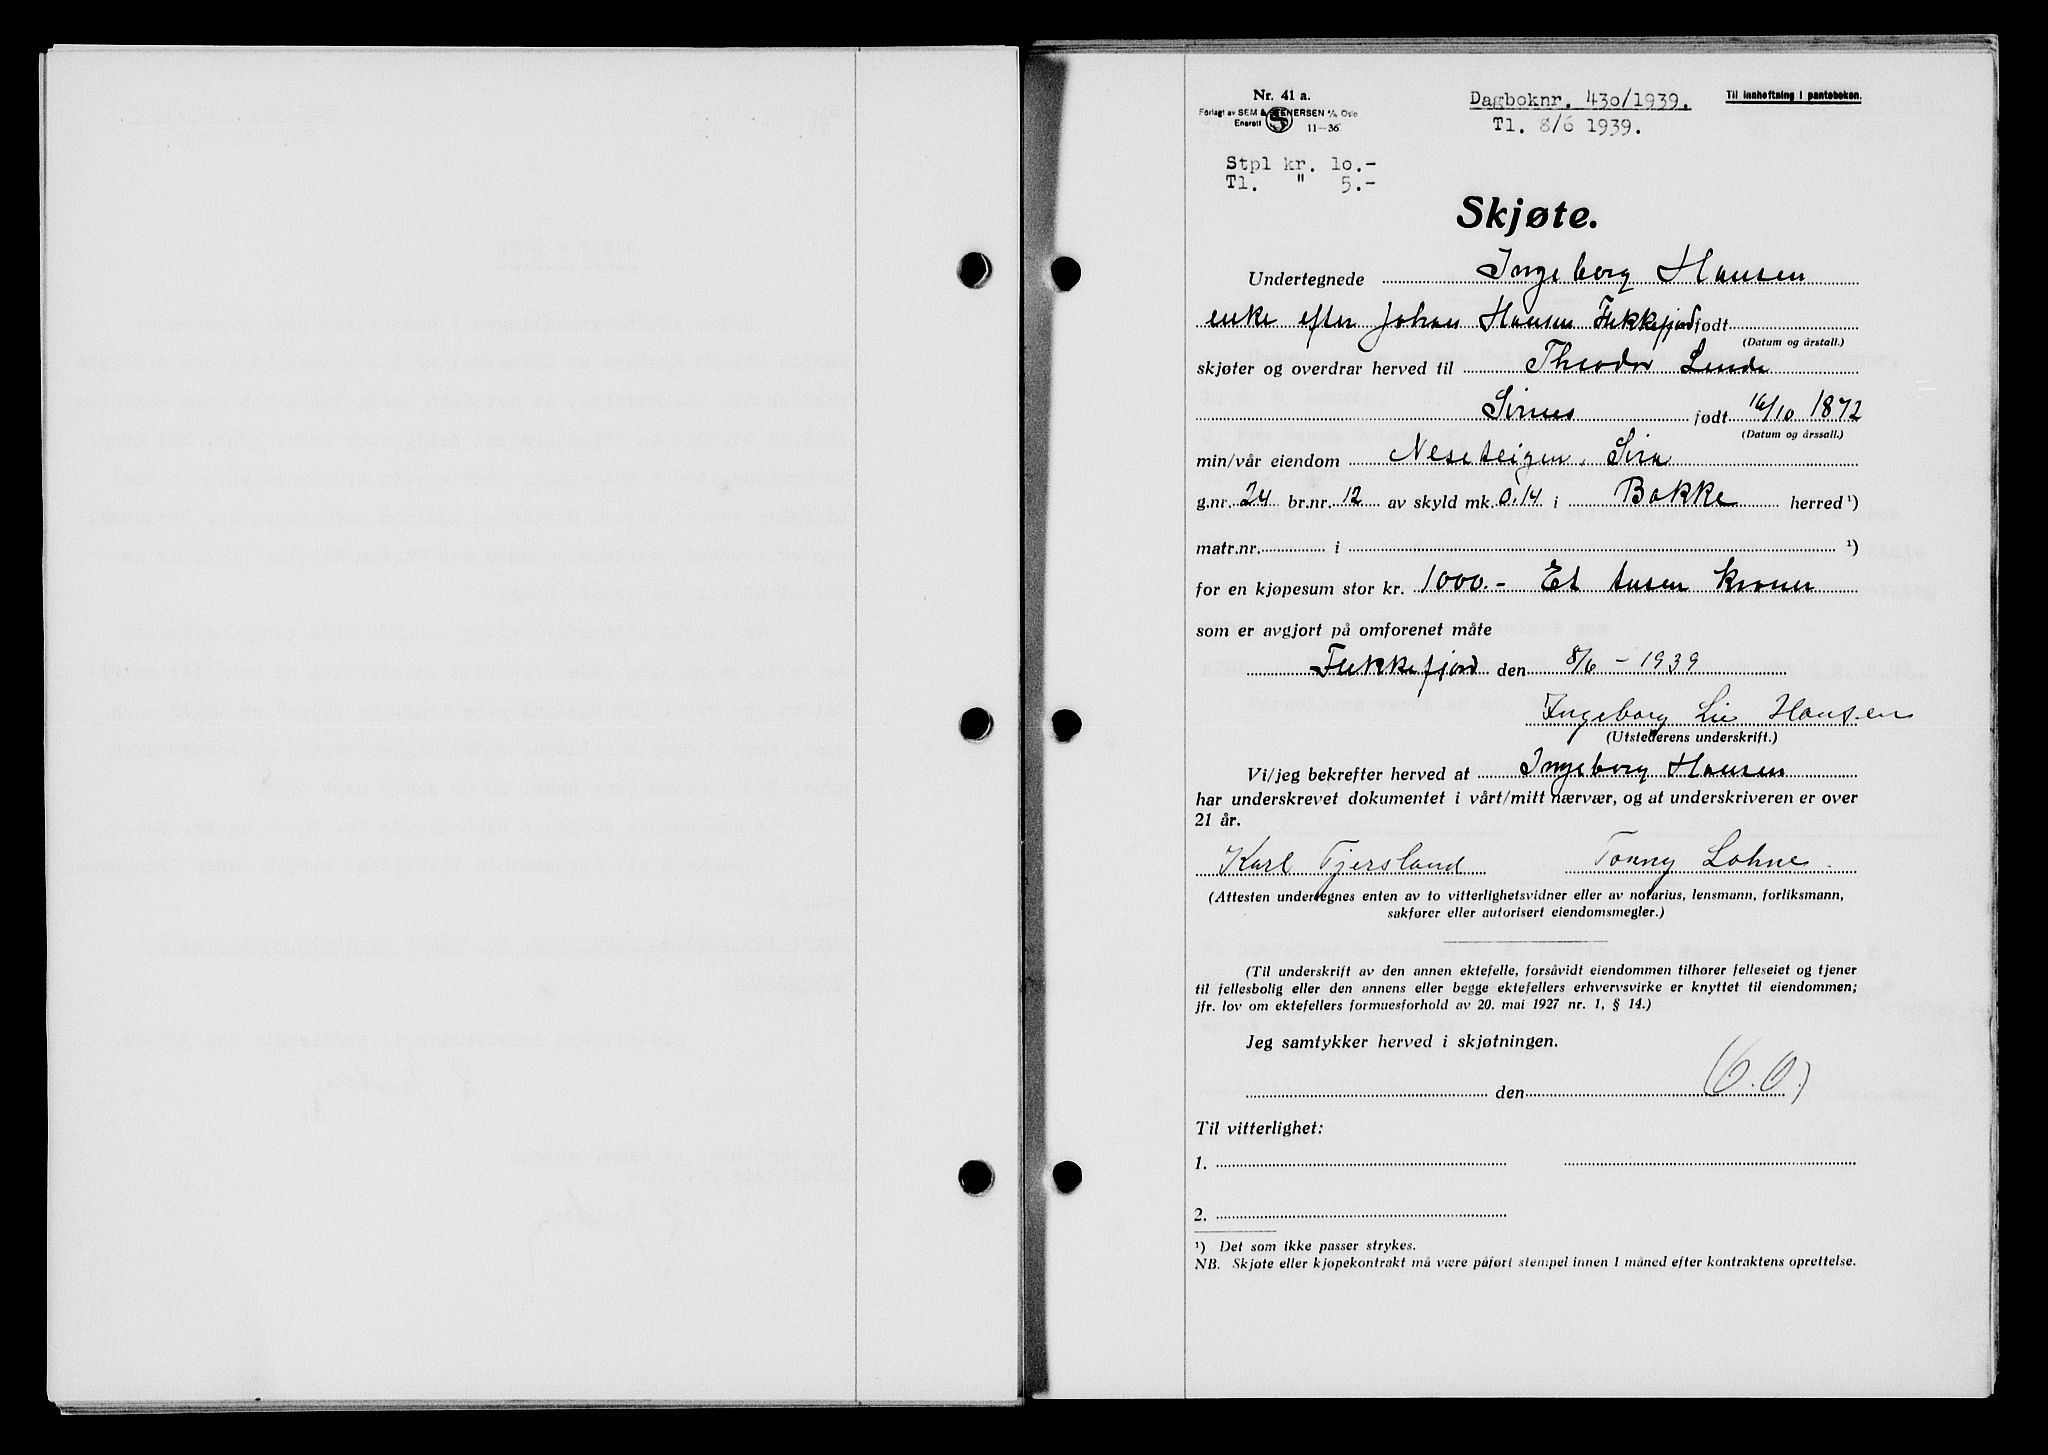 Nr. 41 a.
Forlagt av SEM & STENERSEN A/S Oslo
Enerett 11—36
Dagboknr. 430/1939.
Tl. 8/6 1939.
Til innheftning i panteboken.
Stpl kr. 10.-
Tl. " 5.-
Skjøte.
Undertegnede Ingeborg Hansen
enke efter Johan Hansen Flekkefjord født
(Datum og årstall.)
skjøter og overdrar herved til Theodor Lunde
Sirnes født 16/10 1872
(Datum og årssall.)
min/vår eiendom Neseteigen, Sira
g.nr. 24 br.nr. 12 av skyld mk. 0.14 i Bakke herred ¹)
matr.nr. i ¹)
for en kjøpesum stor kr. 1000.- Et tusen kroner
som er avgjort på omforenet måte
Flekkefjord den 8/6 - 1939
Ingeborg Lie Hansen
(Utstederens underskrift.)
Vi/jeg bekrefter herved at Ingeborg Hansen
har underskrevet dokumentet i vårt/mitt nærvær, og at underskriveren er over
21 år.
Karl Tjersland Tonny Lohne
(Attesten undertegnes enten av to vitterlighetsvidner eller av notarius, lensmann, forliksmann,
sakfører eller autorisert eiendomsmegler.)
(Til underskrift av den annen ektefelle, forsåvidt eiendommen tilhører felleseiet og tjener
til fellesbolig eller den annens eller begge ektefellers erhvervsvirke er knyttet til eiendommen;
jfr. lov om ektefellers formuesforhold av 20. mai 1927 nr. 1, § 14.)
Jeg samtykker herved i skjøtningen.
den (O.O.)
Til vitterlighet:
1.
2.
¹) Det som ikke passer strykes.
NB. Skjøte eller kjøpekontrakt må være påført stempel innen 1 måned efter kontraktens oprettelse.